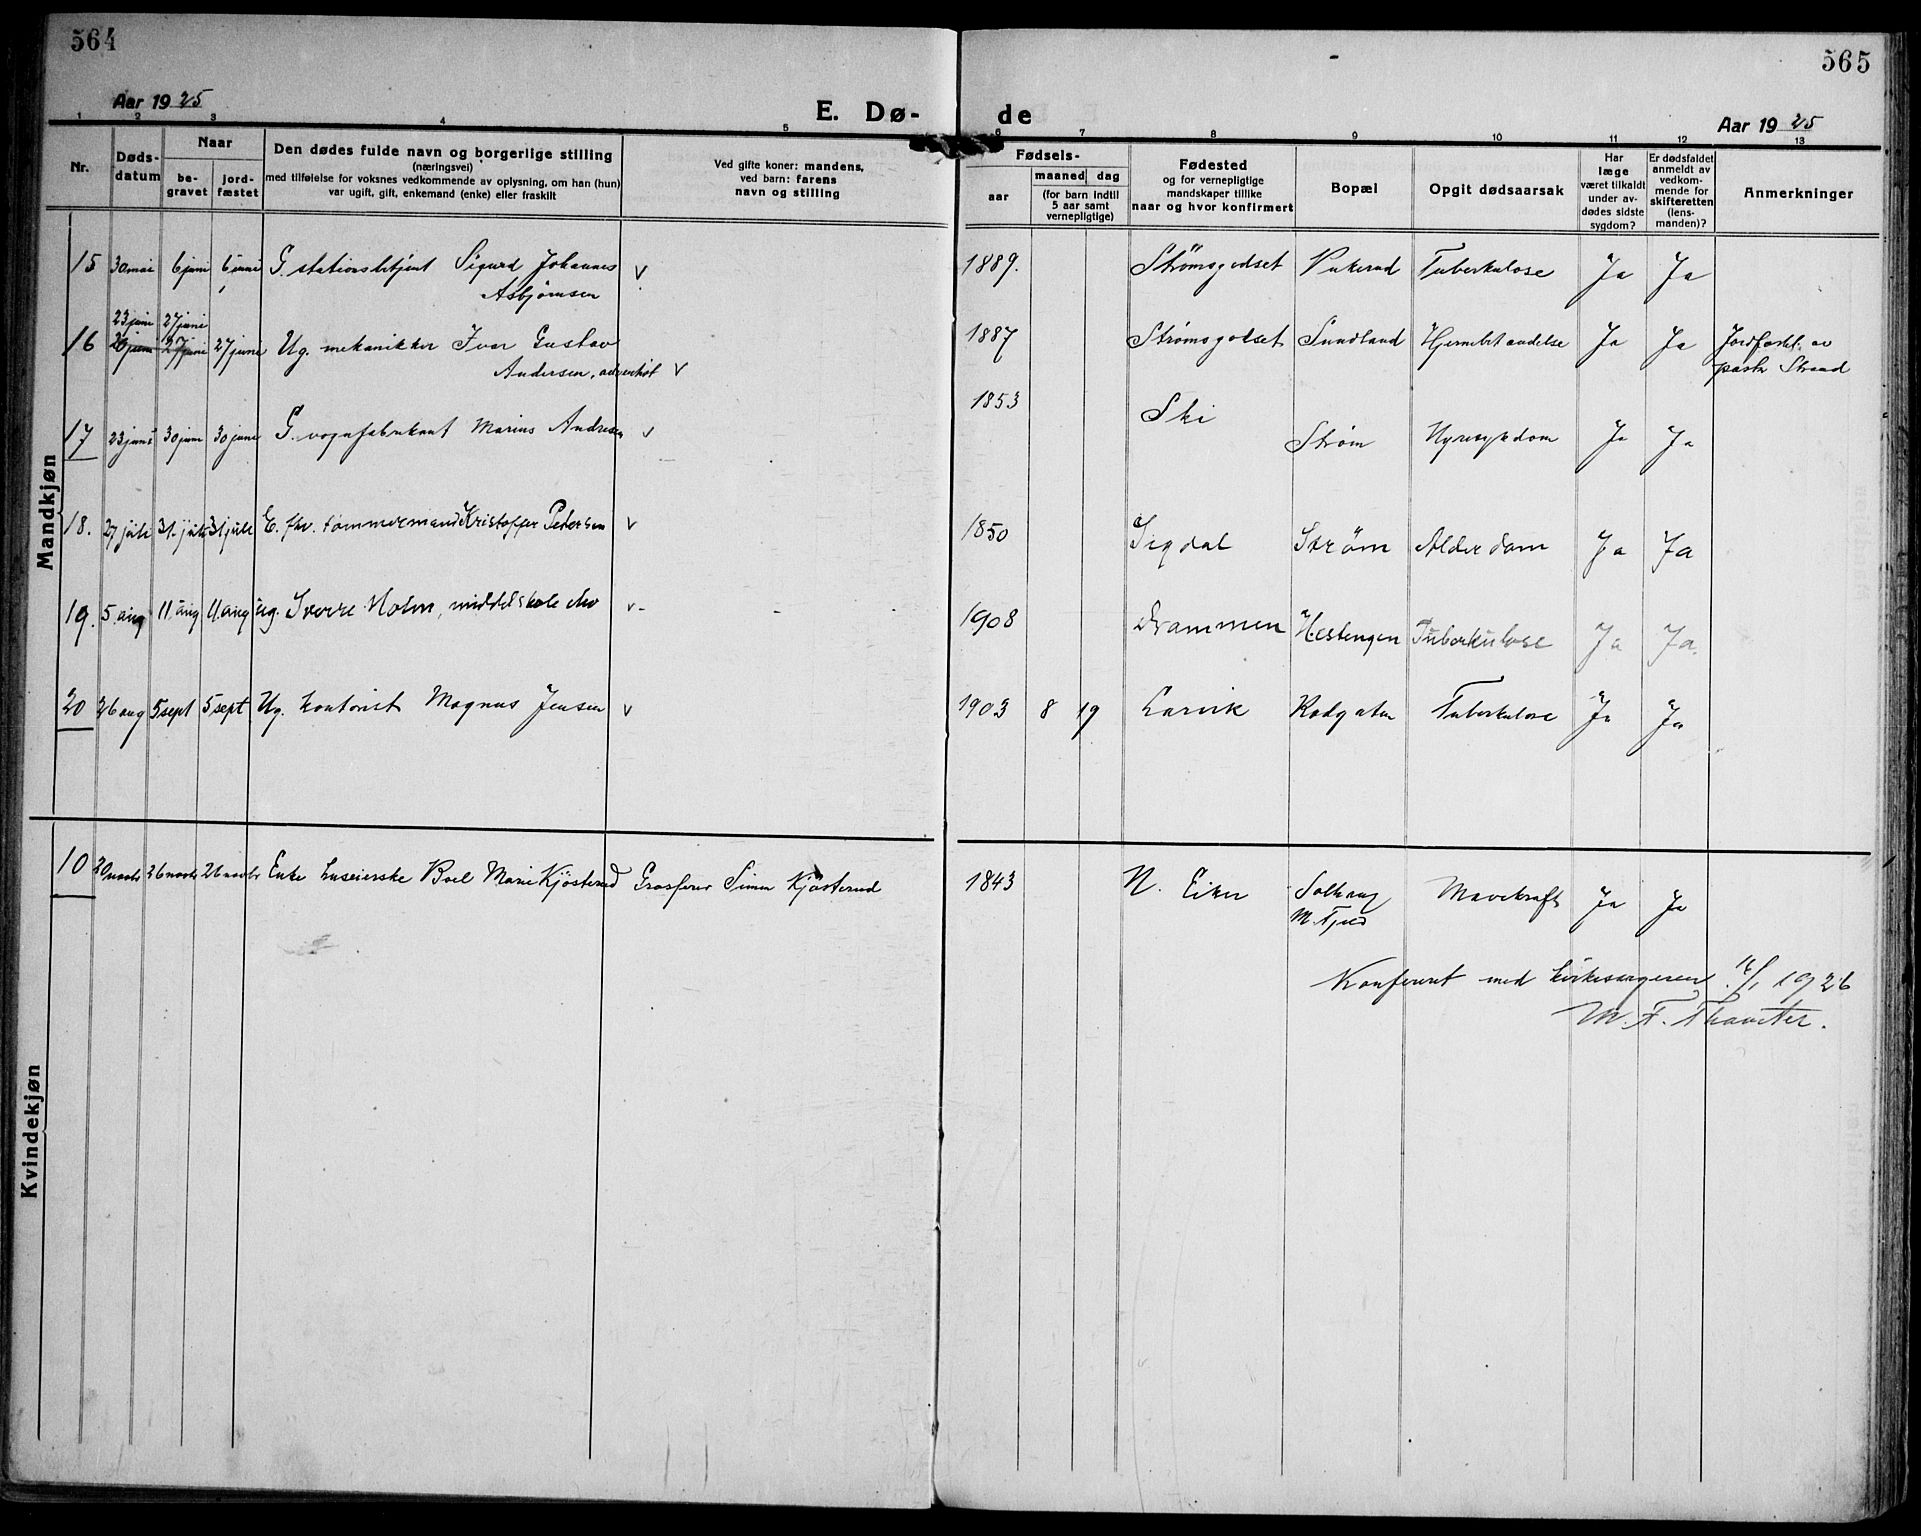 564
Aar 1925
E. Dø-
1 2 3 4 5
Nr.
Døds-
datum
Naar
be-
gravet
jord-
fæstet
Den dødes fulde navn og borgerlige stilling
(næringsvei)
med tilføielse for voksnes vedkommende av oplysning, om han (hun)
var ugift, gift, enkemand (enke) eller fraskilt
Ved gifte koner: mandens,
ved barn: farens
navn og stilling
Mandkjøn
15 30 mai 6 juni 6 juni G. stationsbetjent Sigurd Johannes v
Asbjørnsen
23 juni 27 juni
16 26 juni 27 juni 27 juni Ug. mekanikker Ivar Gustav
Andersen, v
17 23 juni 30 juni 30 juni G. vognfabrikant Marius Andresen v
18. 27 juli 31. juli 31 juli E. fhv. tømmermand Kristoffer Petersen v
19. 5. aug 11. aug 11. aug ug. Sverre Holm, middelskoleelev v -
20 26 aug 5 sept 5 sept Ug. kontorist Magnus Jensen v
Kvindekjøn
10 20 novbr 26 novbr 26 novbr Enke huseierske Boel Marie Kjøsterud Grosserer Simen Kjøsterud
565
de
Aar 1925
6 7 8 9 10 11 12 13
Fødsels-
aar
maaned dag
(for barn indtil
5 aar samt
vernepligtige)
Fødested
og for vernepligtige
mandskaper tillike
naar og hvor konfirmert
Bopæl
Opgit dødsaarsak
Har
læge
været tilkaldt
under av-
dødes sidste
sygdom?
Er dødsfaldet
anmeldt av
vedkom-
mende for
skifteretten
(lens-
manden)?
Anmerkninger
1889. Strømsgodset Vukerud Tuberkulose Ja Ja
1887 Strømsgodset Sundland Hjernebetændelse Ja Ja Jordfæstet av
pastor Strand
1853 Ski Strøm Nyresykdom Ja Ja
1850 Sigdal Strøm Alderdom Ja Ja
1908 Drammen Hestengen Tuberkulose Ja Ja.
1903 8 19 Larvik Rødgaten Tuberkulose Ja Ja
1843 N. Eiker Solhaug Mavekræft Ja Ja
M. Fjeld
Konferert med kirkesangeren 16/1 1926